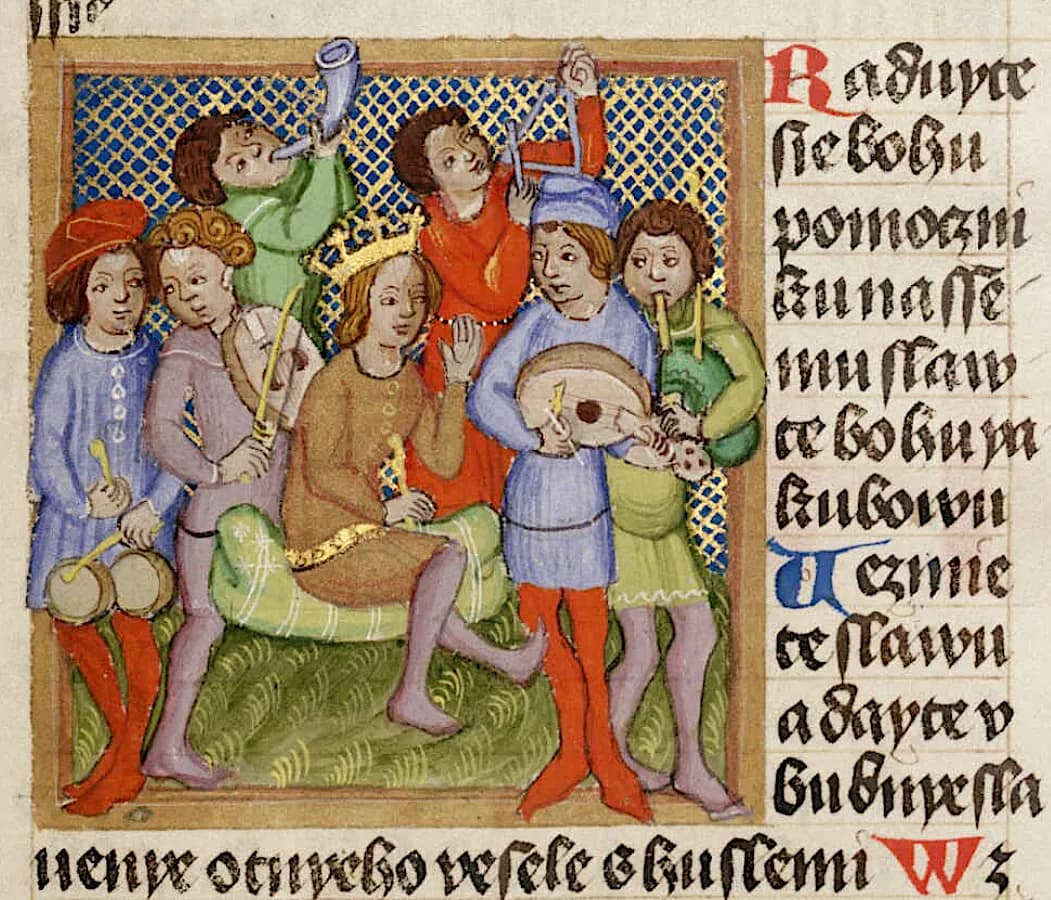 ſſie
Raduyte
ſie bohu
pomoczni
ku naſſe
mu ſlaw
te bohu ya
kubowu
Uezmie
te ſlawu
a dayte v
bubnye ſla
uenye otnyeho veſele s huſlemi Wz